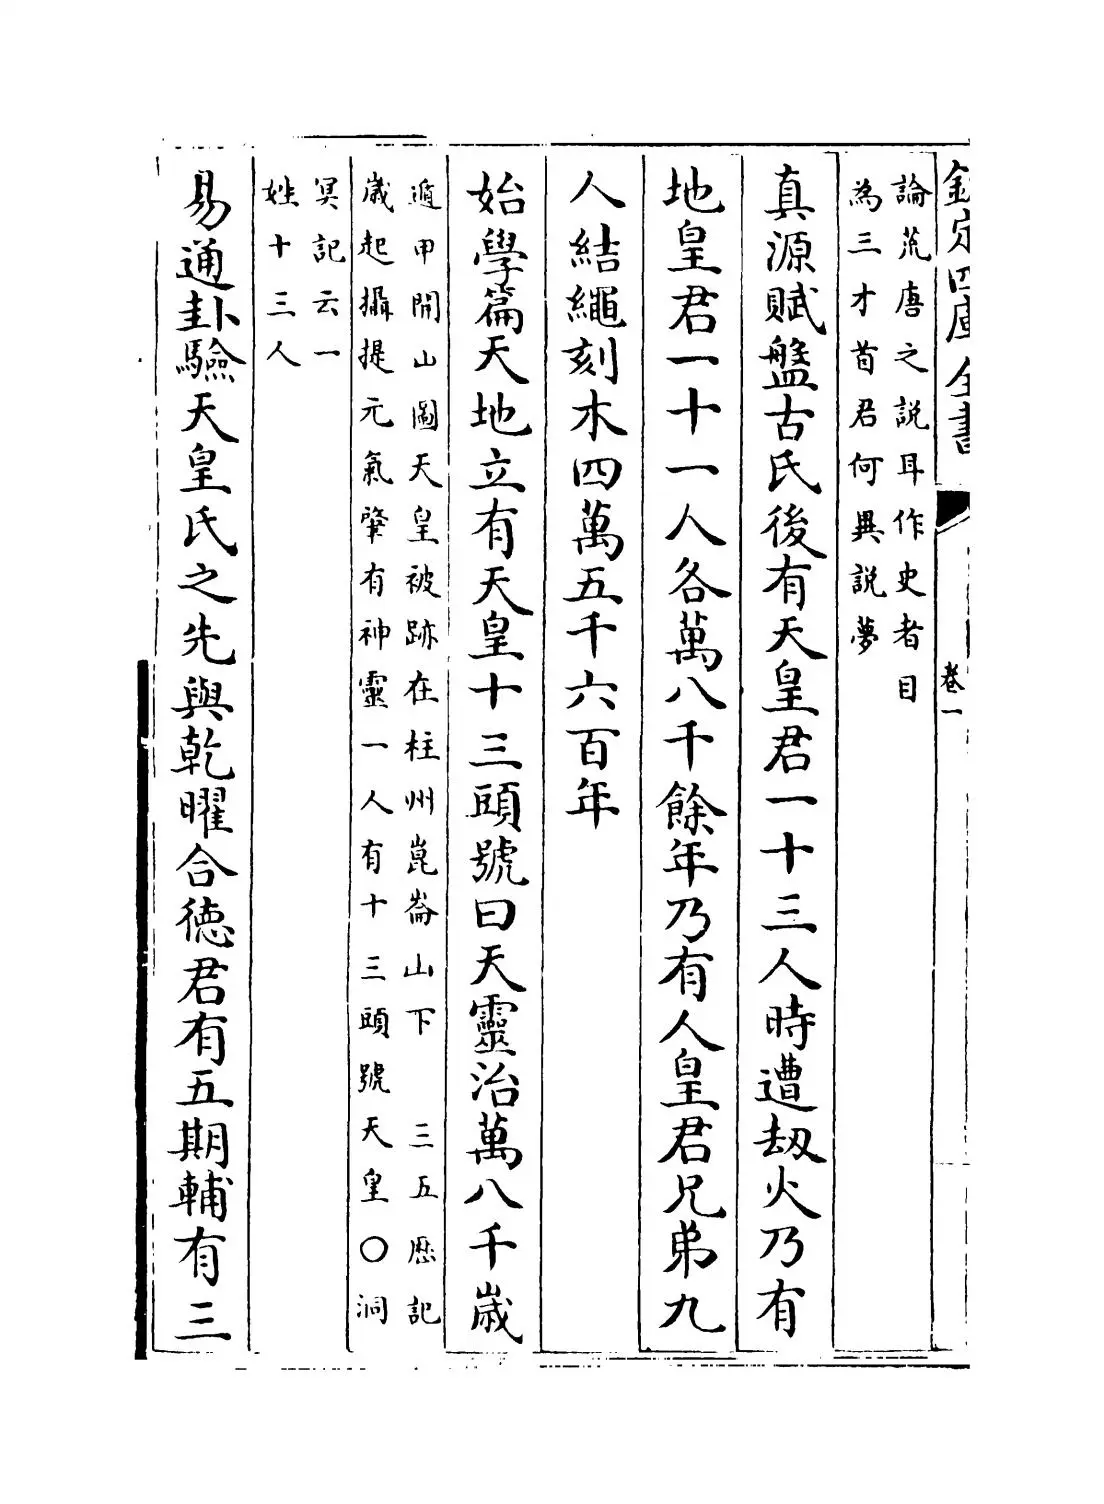 欽定四庫全書
卷一
論荒唐之説耳作史者目
為三才首君何異説夢
真源賦盤古氏後有天皇君一十三人時遭劫火乃有
地皇君一十一人各萬八千餘年乃有人皇君兄弟九
人結繩刻木四萬五千六百年
始學篇天地立有天皇十三頭號曰天靈治萬八千歲
遁甲開山圖天皇被跡在柱州崑崙山下 三五厯記
歲起攝提元氣肇有神靈一人有十三頭號天皇〇洞
冥記云一
姓十三人
易通卦驗天皇氏之先與乾曜合德君有五期輔有三